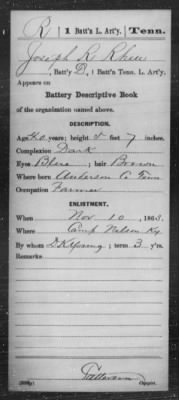 R | 1 Batt'n L. Art'y. | Tenn.
Joseph R Rhea
, Batt'y D, 1 Batt'n Tenn. L. Art'y.
Appears on
Battery Descriptive Book
of the organization named above.
DESCRIPTION.
Age 40 years; height 5 feet 7 inches.
Complexion Dark
Eyes Blue ; hair Brown
Where born Anderson Co Tenn
Occupation Farmer
ENLISTMENT.
When Nov 10 , 1863.
Where Camp Nelson Ky
By whom D.K. Young ; term 3 y'rs.
Remarks
Patterson
Copyist.